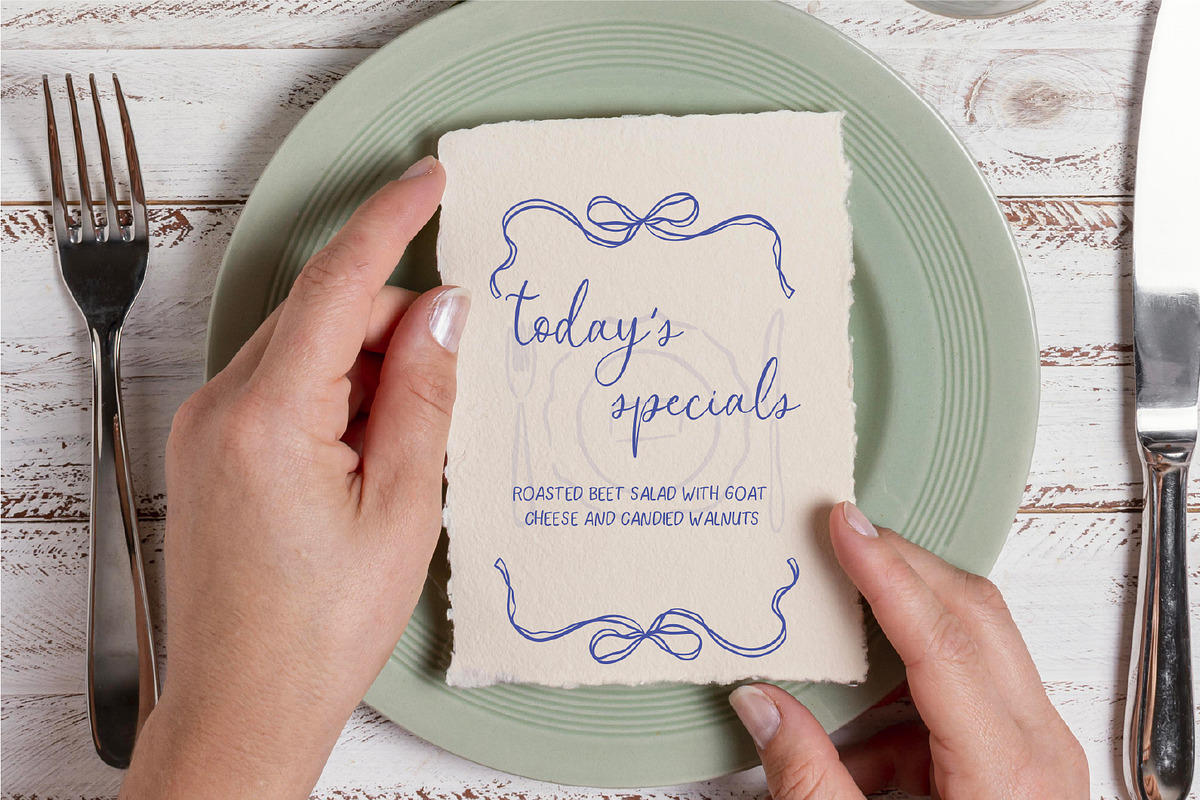 today's
specials
ROASTED BEET SALAD WITH GOAT
CHEESE AND CANDIED WALNUTS